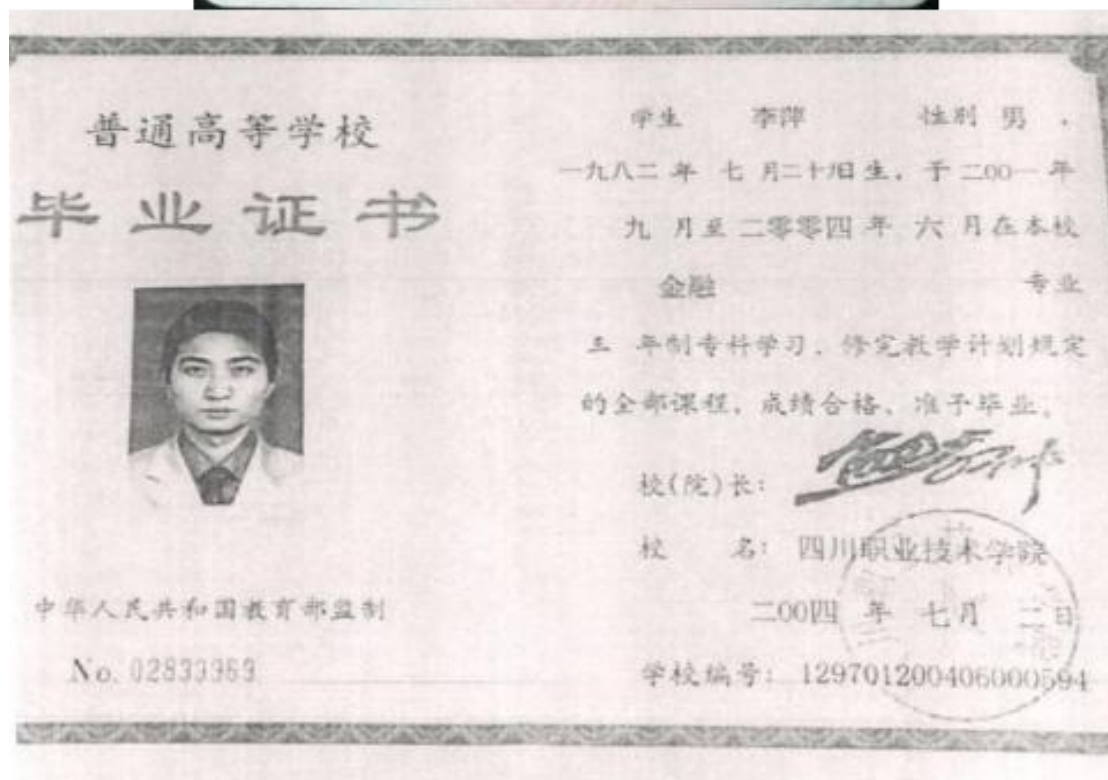 普通高等学校
毕业证书
中华人民共和国教育部监制
No. 02833969
学生 李萍 性别 男 、
一九八二 年 七 月二十 日生，于 二00一 年
九 月至 二零零四 年 六 月在本校
金融 专业
三 年制专科学习，修完教学计划规定
的全部课程，成绩合格、准予毕业。
校(院)长：
校 名： 四川职业技术学院
二00四 年 七月 二日
学校编号： 129701200406000594